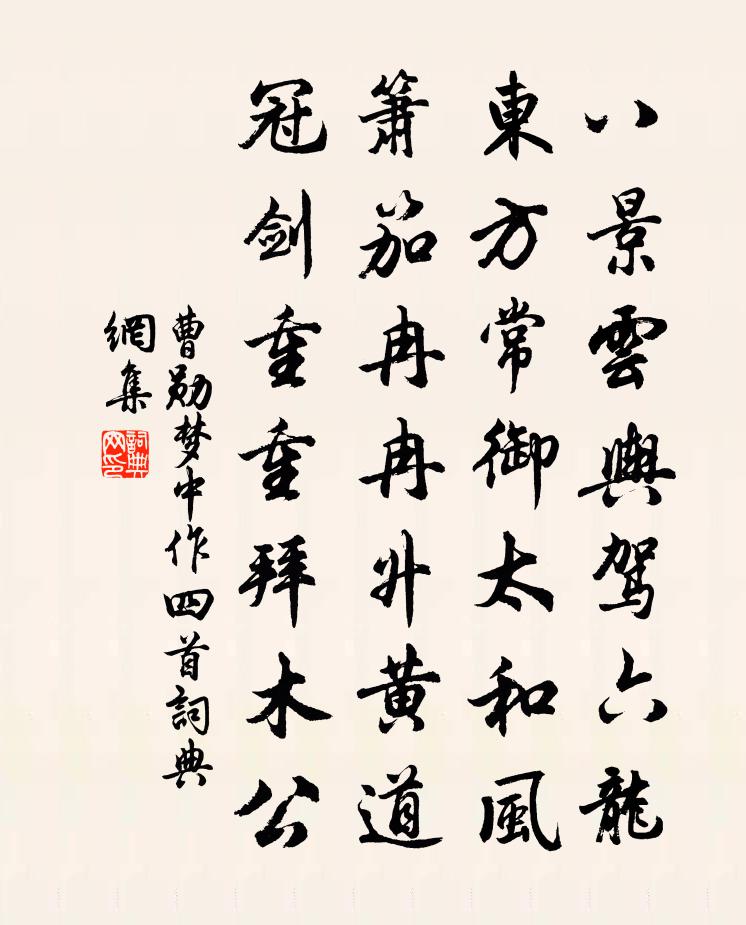 八景雲輿駕六龍
東方常御太和風
簫笳冉冉升黄道
冠剑重重拜木公
曹勋梦中作四首詞典
網集
詞典
网